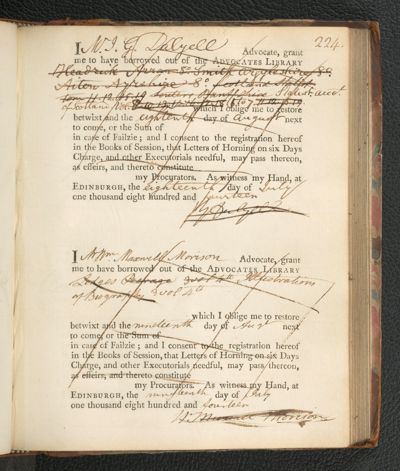 224.
I M. J. G. Dalyell Advocate, grant
me to have borrowed out of the ADVOCATES LIBRARY
Headrick Arran 8o Smith Argyleshire 8o
Aiton Ayrshire 8o Scotland
Statist. acct
of Scotland which I oblige me to restore
betwixt and the eighteenth day of August next
to come, or the Sum of
in case of Failzie; and I consent to the registration hereof
in the Books of Session, that Letters of Horning on six Days
Charge, and other Executorials needful, may pass thereon,
as effeirs, and thereto constitute
my Procurators. As witness my Hand, at
EDINBURGH, the eighteenth day of July
one thousand eight hundred and fourteen
J G Dalyell
I Mr Wm Maxwell Morison Advocate, grant
me to have borrowed out of the ADVOCATES LIBRARY
Lodges 3 vol 4to Illustrations
of Biography 3 vol 4to
which I oblige me to restore
betwixt and the nineteenth day of Augt next
to come, or the Sum of
in case of Failzie; and I consent to the registration hereof
in the Books of Session, that Letters of Horning on six Days
Charge, and other Executorials needful, may pass thereon,
as effeirs, and thereto constitute
my Procurators. As witness my Hand, at
EDINBURGH, the nineteenth day of July
one thousand eight hundred and fourteen
W. Maxwell Morison